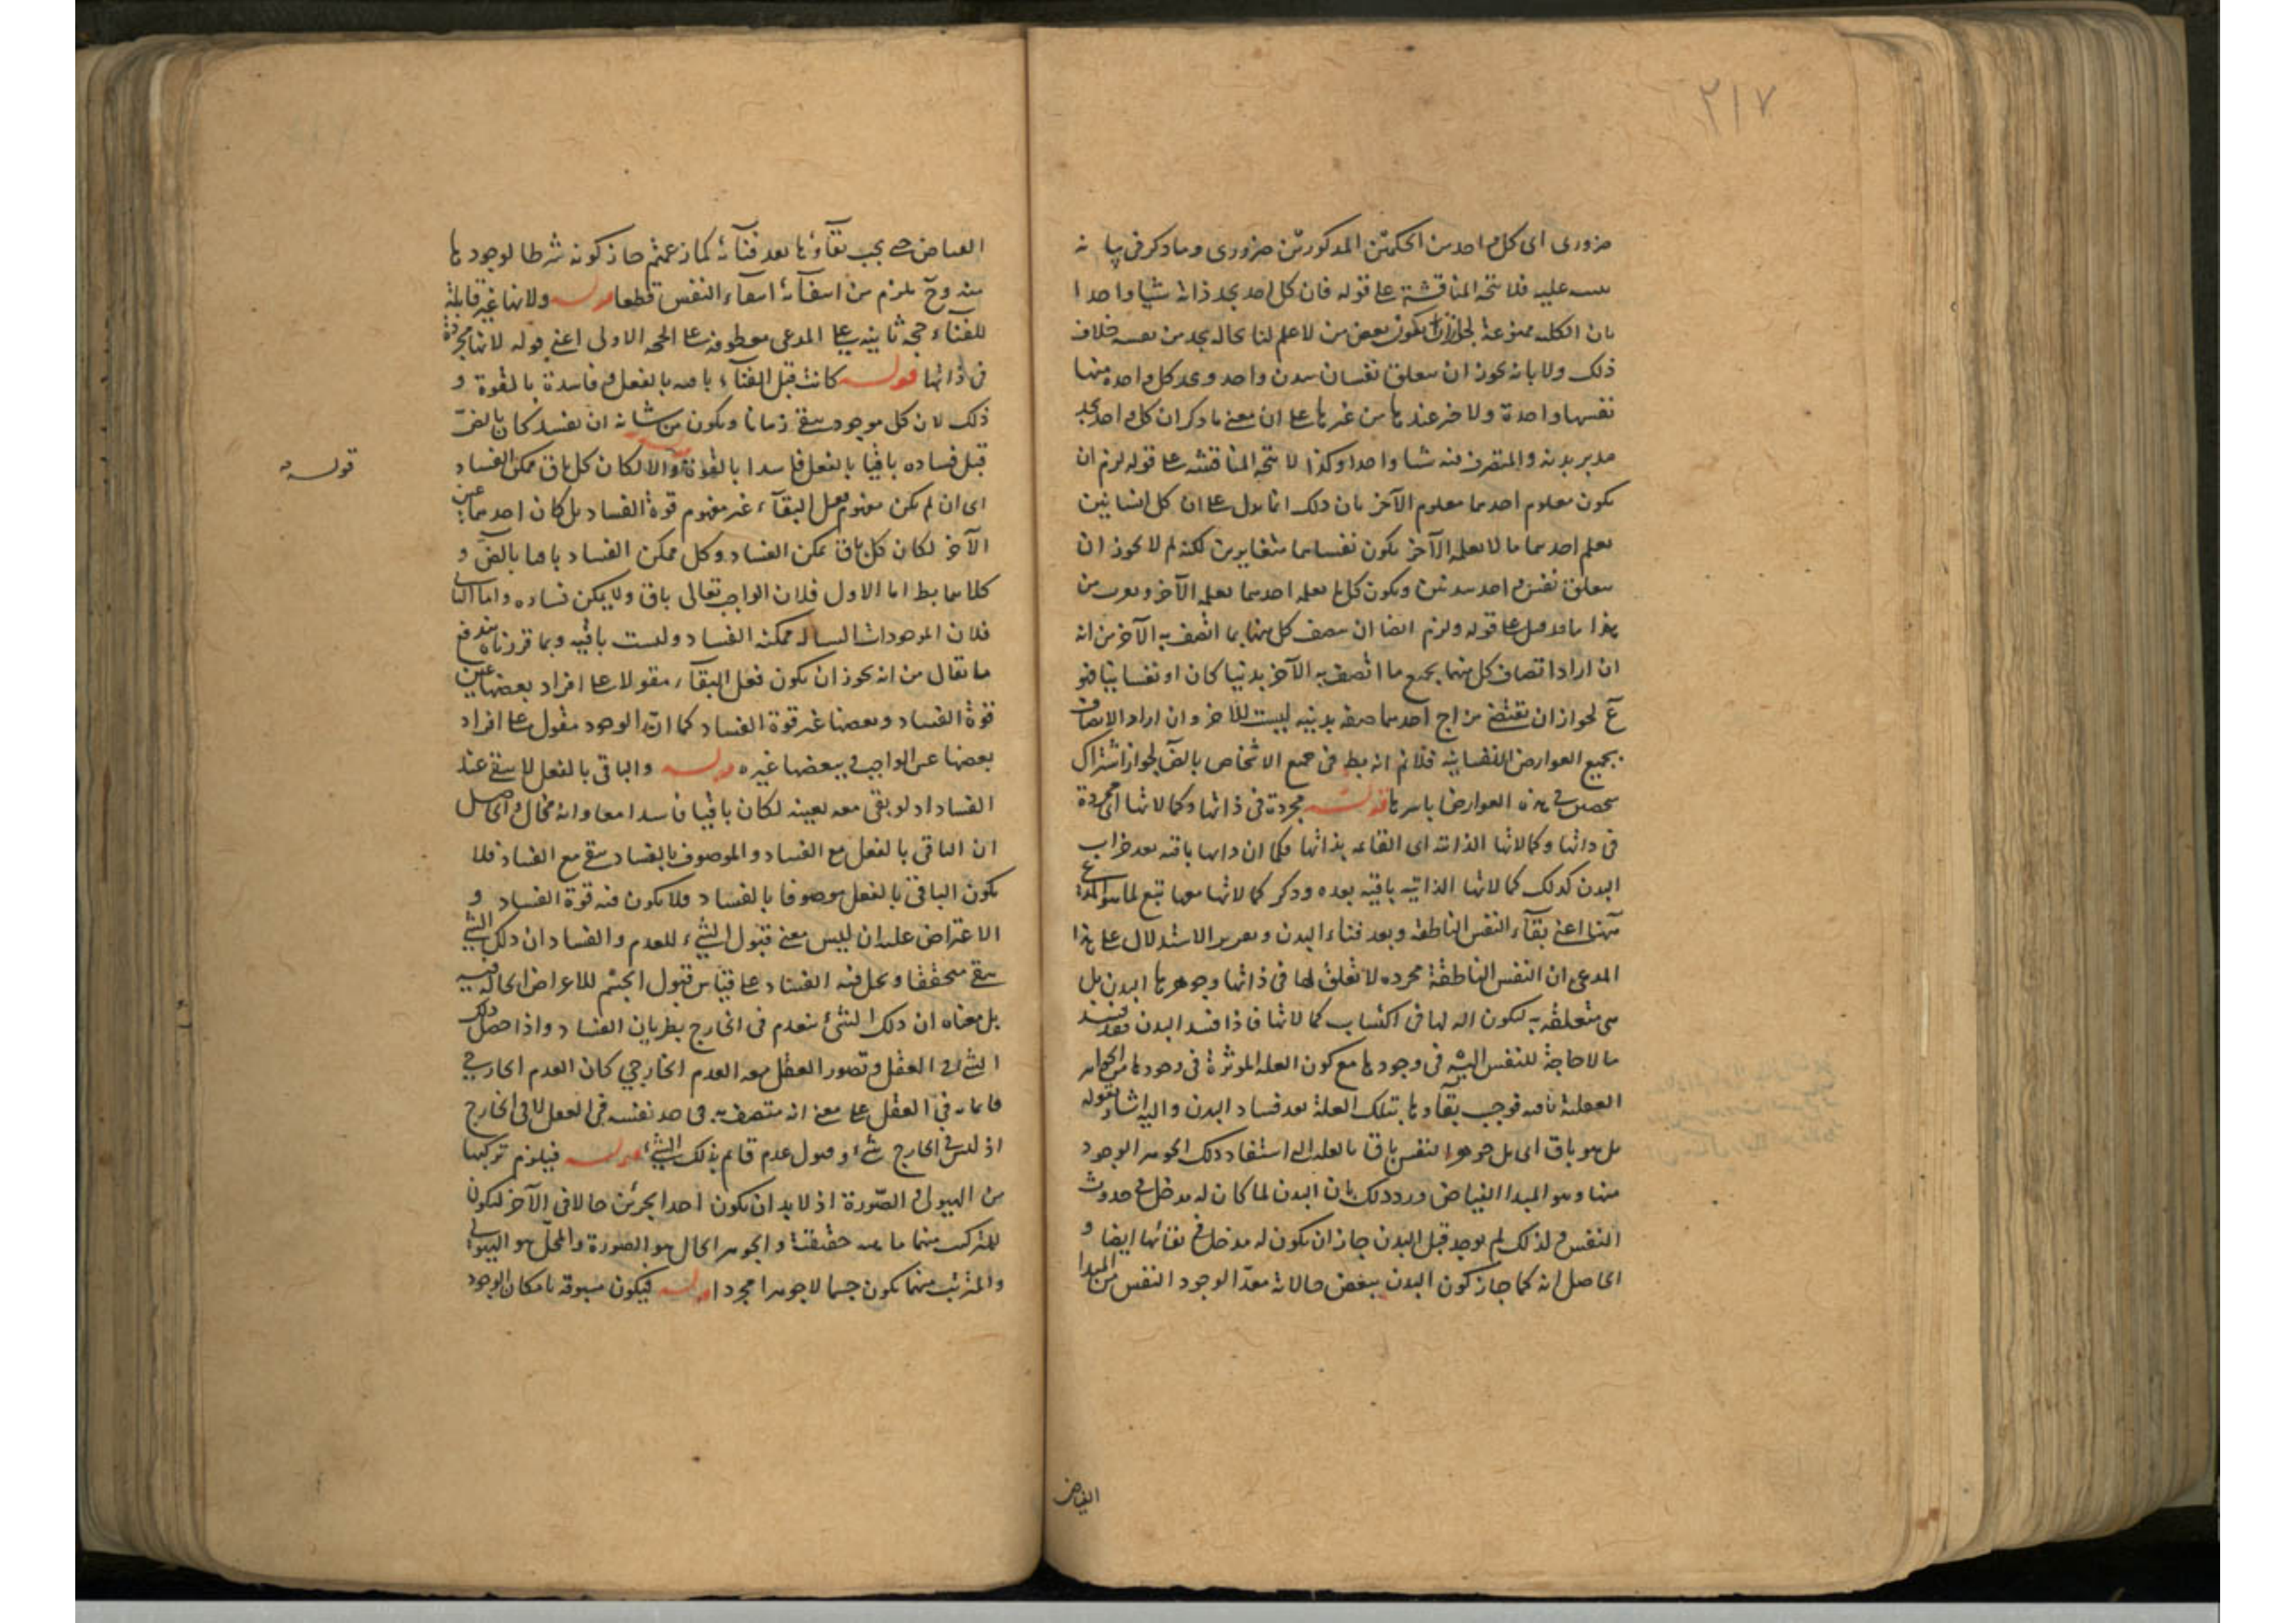 ٢١٧
ضرورى اى كل واحد من الحكمين المذكورين ضرورى وما ذكر فى بيانه
عليه فلا يتجه المناقشة على قوله فان كل احد يجد ذاته شيئا واحدا
بان الكلية ممنوعة لجواز ان يكون بعض من لا علم لنا بحاله يجد من نفسه خلاف
ذلك ولا بانه يجوز ان يتعلق نفسان ببدن واحد ويجد كل واحدة منها
نفسها واحدة ولا خبر عندها من غيرها على ان معنى ما ذكر ان كل واحد يجد
مدبر بدنه والمتصرف فيه شيئا واحدا وكذا لا يتجه المناقشة على قوله لزم ان
يكون معلوم احدهما معلوم الآخر بان ذلك انما يدل على ان كل انسانين
يعلم احدهما ما لا يعلمه الآخر يكون نفساهما متغايرين لكنه لم لا يجوز ان
يتعلق نفس واحد ببدنين ويكون كل ما يعلمه احدهما يعلمه الآخر ويعرف من
هذا ما قد قيل على قوله ولزم ايضا ان يتصف كل منهما بما اتصف به الآخر من انه
ان اراد اتصاف كل منهما بجميع ما اتصف به الآخر بدنيا كان او نفسانيا فهو
مع لجواز ان يقتضى مزاج احدهما صفة بدنية ليست للآخر وان اراد الاتصاف
بجميع العوارض النفسانية فلانم انه بط فى جميع الاشخاص بالض لجواز اشتراك
شخصين فى هذه العوارض باسرها قوله مجردة فى ذاتها وكمالاتها اى مجردة
فى ذاتها وكمالاتها الذاتية اى القائمة بذاتها فكما ان ذاتها باقية بعد خراب
البدن كذلك كمالاتها الذاتية باقية بعده وذكر كمالاتها معها تبع لما هو المدعى
ههنا اعنى بقاء النفس الناطقة وبعد فناء البدن وتقرير الاستدلال على هذا
المدعى ان النفس الناطقة مجرده لا تعلق لها فى ذاتها وجوهرها بالبدن بل
هى متعلقة به ليكون آلة لها فى اكتساب كمالاتها فاذا فسد البدن فقد فسد
ما لا حاجة للنفس اليه فى وجودها مع كون العلة الموثرة فى وجودها من الجواهر
العقلية باقية فوجب بقاؤها بتلك العلة بعد فساد البدن واليه اشار بقوله
بل هو باق اى بل جوهر النفس باق بالعلة التى استفاد ذلك الجوهر الوجود
منها وهو المبدا الفياض ورد ذلك بان البدن لما كان له مدخل فى حدوث
النفس ولذلك لم يوجد قبل البدن جاز ان يكون له مدخل فى بقائها ايضا و
الحاصل انه كما جاز كون البدن ببعض حالاته معدا لوجود النفس من المبدا
الفياض
الفياض حتى يجب بقاؤها بعد فنائه كما زعمتم جاز كونه شرطا لوجودها
منه وح يلزم من انتفائه انتفاء النفس قطعا قوله ولانها غير قابلة
للفناء حجة ثانية على المدعى معطوفة على الحجة الاولى اعنى قوله لانها مجردة
فى ذاتها قوله كانت قبل الفناء باقية بالفعل وفاسدة بالقوة و
ذلك لان كل موجود يبقى زمانا ويكون من شانه ان يفسد كان بالض
قبل فساده باقيا بالفعل فاسدا بالقوة قوله والا لكان كل باق ممكن الفساد
قوله
اى ان لم يكن مفهوم فعل البقاء غير مفهوم قوة الفساد بل كان احدهما عين
الآخر لكان كل باق ممكن الفساد وكل ممكن الفساد باقيا بالض و
كلاهما بط اما الاول فلان الواجب تعالى باق ولا يمكن فساده واما الثانى
فلان الموجودات السيالة ممكنة الفساد وليست باقية وبما قررناه يندفع
ما يقال من انه يجوز ان يكون فعل البقاء مقولا على افراد بعضها عين
قوة الفساد وبعضها غير قوة الفساد كما ان الوجود مقول على افراد
بعضها عين الواجب وبعضها غيره قوله والباقى بالفعل لا يبقى عند
الفساد اذ لو بقى معه بعينه لكان باقيا فاسدا معا وانه محال والحاصل
ان الباقى بالفعل مع الفساد والموصوف بالفساد يبقى مع الفساد فلا
يكون الباقى بالفعل موصوفا بالفساد فلا يكون فيه قوة الفساد و
الاعتراض عليه ان ليس معنى قبول الشىء للعدم والفساد ان ذلك الشى
يبقى متحققا ويحل فيه الفساد على قياس قبول الجسم للاعراض الحالة فيه
بل معناه ان ذلك الشئ ينعدم فى الخارج بطريان الفساد واذا حصل ذلك
الشى فى العقل وتصور العقل معه العدم الخارجي كان العدم الخارجى
قائما به فى العقل على معنى انه متصف به فى حد نفسه فى العقل لا فى الخارج
اذ ليس فى الخارج شىء وقبول عدم قائم بذلك الشىء قوله فيلزم تركبها
من الهيولى والصورة اذ لا بد ان يكون احد الجزئين حالا فى الآخر ليكون
للمركب منهما ماهية حقيقية والجوهر الحال هو الصورة والمحل هو الهيولى
والمترتب منهما يكون جسما لا جوهرا مجردا قوله فيكون مسبوقة بامكان الوجود